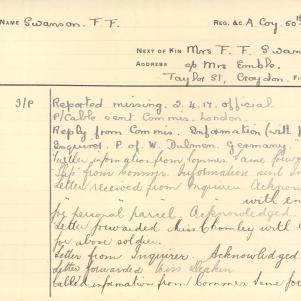 NAME Swanson. F. F. REG. &C. A Coy. 50th
NEXT OF KIN Mrs F. F. Swan
ADDRESS c/o Mrs Emble.
Taylor St, Croydon.
3/P Reported missing. 2.4.17. official
P/Cable sent Commis. London.
Reply from Commis. Information (with
Inquirer. P. of W. Dulmen. Germany."
Further information from Commrs. same forw
Slip from Commrs. Information sent
Letter received from Inquirer Acknow
with en
for personal parcel. Acknowledged
Letter forwarded Miss Chomley with
for above soldier.
Letter from Inquirer. Acknowledged
Letter forwarded Miss
Cabled information from Commrs same fo